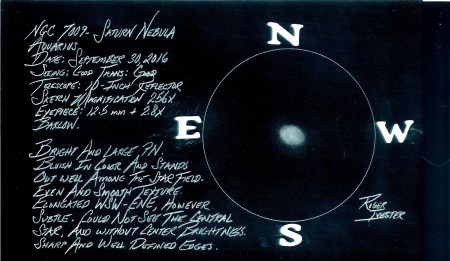 NGC 7009- SATURN NEBULA
AQUARIUS
DATE: SEPTEMBER 30, 2016
SEEING: GOOD TRANS: GOOD
TELESCOPE: 10-INCH REFLECTOR
SKETCH MAGNIFICATION 256X
EYEPIECE: 12.5 mm + 2.8X
BARLOW.
BRIGHT AND LARGE PN.
BLUISH IN COLOR AND STANDS
OUT WELL AMONG THE STAR FIELD.
EVEN AND SMOOTH TEXTURE.
ELONGATED WSW-ENE, HOWEVER
SUBTLE. COULD NOT SEE THE CENTRAL
STAR, AND WITHOUT CENTER BRIGHTNESS.
SHARP AND WELL DEFINED EDGES.
N
E
W
S
ROGER
IVESTER